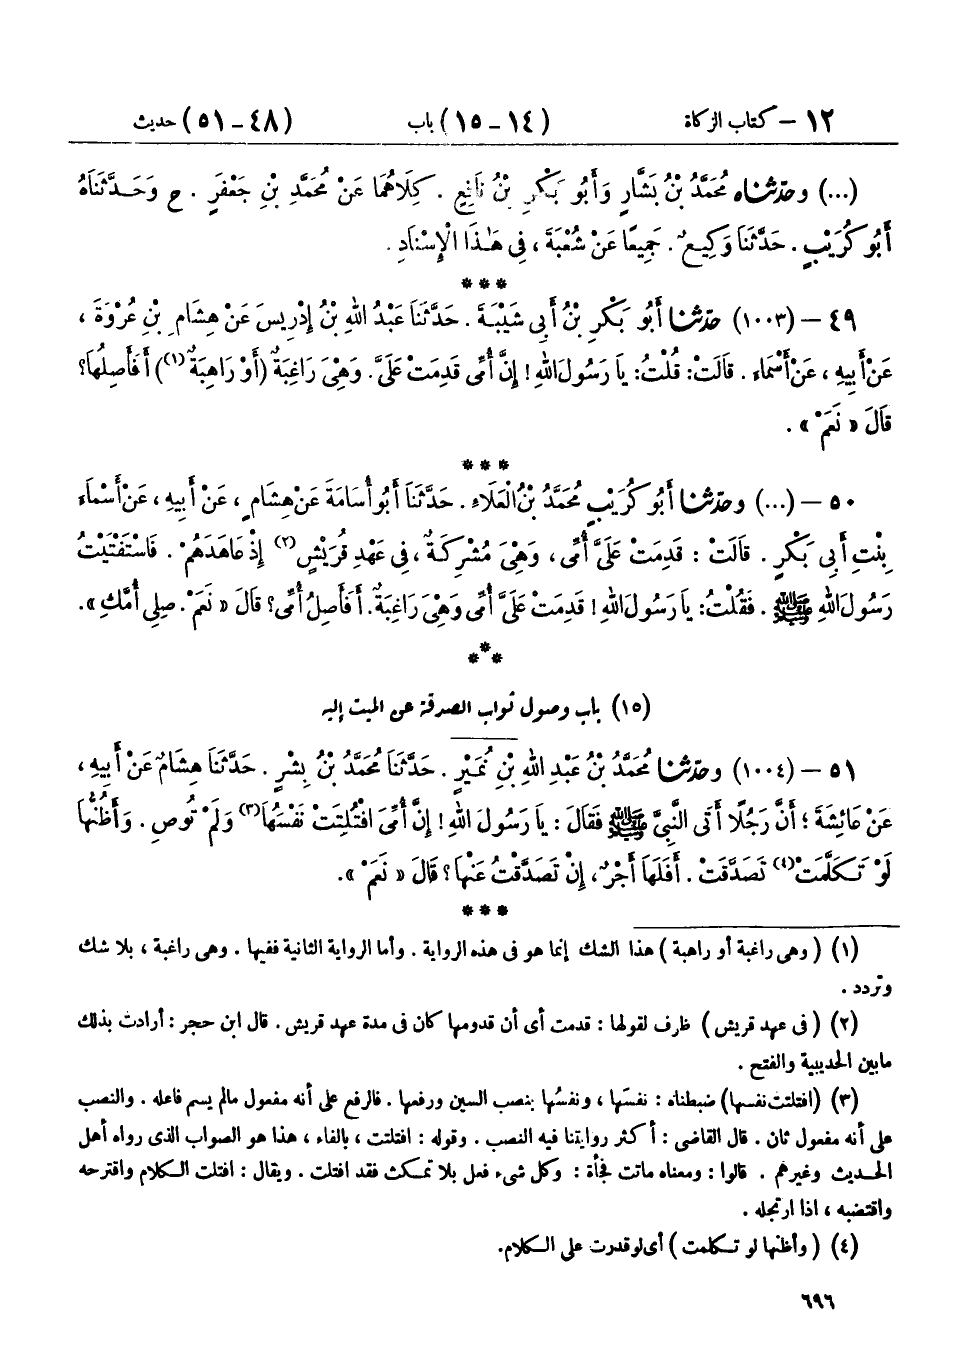 ١٢ – كتاب الزكاة (١٤ – ١٥) باب (٤٨ – ٥١) حديث
(...) وحَدَّثَنَاه مُحَمَّدُ بْنُ بَشَّارٍ وَأَبُو بَكْرِ بْنُ نَافِعٍ . كِلَاهُمَا عَنْ مُحَمَّدِ بْنِ جَعْفَرٍ . ح وَحَدَّثَنَاهُ
أَبُو كُرَيْبٍ . حَدَّثَنَا وَكِيعٌ . جَمِيعًا عَنْ شُعْبَةَ ، فِي هَٰذَا الْإِسْنَادِ .
***
٤٩ – (١٠٠٣) حَدَّثَنَا أَبُو بَكْرِ بْنُ أَبِي شَيْبَةَ . حَدَّثَنَا عَبْدُ اللهِ بْنُ إِدْرِيسَ عَنْ هِشَامِ بْنِ عُرْوَةَ ،
عَنْ أَبِيهِ ، عَنْ أَسْمَاءَ . قَالَتْ: قُلْتُ: يَا رَسُولَ اللهِ ! إِنَّ أُمِّى قَدِمَتْ عَلَىَّ. وَهْىَ رَاغِبَةٌ (أَوْ رَاهِبَةٌ (١)) أَفَأَصِلُهَا؟
قَالَ « نَعَمْ » .
***
٥٠ – (...) وحَدَّثَنَا أَبُو كُرَيْبٍ مُحَمَّدُ بْنُ الْعَلَاءِ. حَدَّثَنَا أَبُو أُسَامَةَ عَنْ هِشَامٍ ، عَنْ أَبِيهِ ، عَنْ أَسْمَاءَ
بِنْتِ أَبِى بَكْرٍ . قَالَتْ : قَدِمَتْ عَلَىَّ أُمِّى، وَهْىَ مُشْرِكَةٌ ، فِى عَهْدِ قُرَيْشٍ (٢) إِذْ عَاهَدَهُمْ . فَاسْتَفْتَيْتُ
رَسُولَ اللهِ ﷺ . فَقُلْتُ: يَا رَسُولَ اللهِ ! قَدِمَتْ عَلَىَّ أُمِّى وَهْىَ رَاغِبَةٌ. أَفَأَصِلُ أُمِّى؟ قَالَ « نَعَمْ. صِلِى أُمَّكِ ».
***
(١٥) باب وصول ثواب الصدقة عن الميت إليه
٥١ – (١٠٠٤) وحَدَّثَنَا مُحَمَّدُ بْنُ عَبْدِ اللهِ بْنِ نُمَيْرٍ . حَدَّثَنَا مُحَمَّدُ بْنُ بِشْرٍ . حَدَّثَنَا هِشَامٌ عَنْ أَبِيهِ ،
عَنْ عَائِشَةَ ؛ أَنَّ رَجُلًا أَتَى النَّبِىَّ ﷺ فَقَالَ : يَا رَسُولَ اللهِ ! إِنَّ أُمِّىَ افْتُلِتَتْ نَفْسُهَا (٣) وَلَمْ تُوصِ . وَأَظُنُّهَا
لَوْ تَكَلَّمَتْ (٤) تَصَدَّقَتْ . أَفَلَهَا أَجْرٌ ، إِنْ تَصَدَّقْتُ عَنْهَا ؟ قَالَ « نَعَمْ ».
***
(١) ( وهى راغبة أو راهبة ) هذا الشك إنما هو فى هذه الرواية . وأما الرواية الثانية ففيها . وهى راغبة ، بلا شك
وتردد .
(٢) ( فى عهد قريش ) ظرف لقولها : قدمت أى أن قدومها كان فى مدة عهد قريش . قال ابن حجر : أرادت بذلك
مابين الحديبية والفتح .
(٣) (افتلتت نفسها) ضبطناه : نفسَها ، ونفسُها بنصب السين ورفعها . فالرفع على أنه مفعول مالم يسم فاعله . والنصب
على أنه مفعول ثان . قال القاضى : أكثر روايتنا فيه النصب . وقوله : افتلتت ، بالفاء ، هذا هو الصواب الذى رواه أهل
الحديث وغيرهم . قالوا : ومعناه ماتت فجأة : وكل شىء فعل بلا تمكث فقد افتلت . ويقال : افتلت الكلام واقترحه
واقتضبه ، اذا ارتجله .
(٤) ( وأظنها لو تكلمت ) أى لو قدرت على الكلام.
٦٩٦